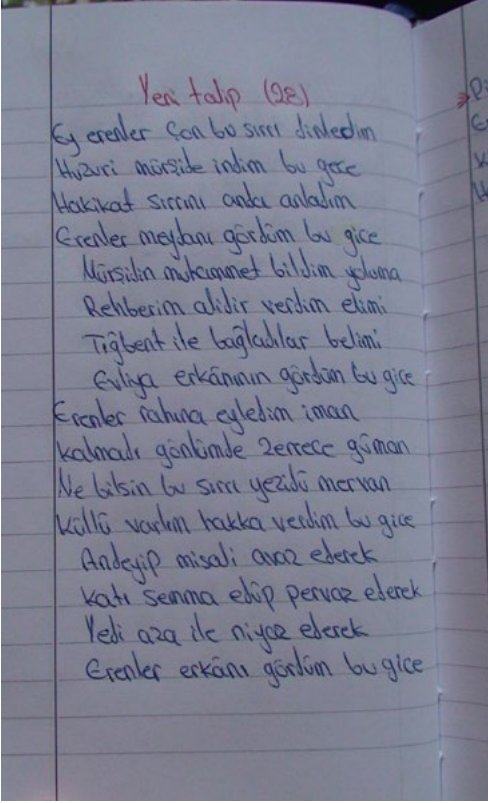 Yeni talip (28)
Ey erenler Çon bu sırrı dinledim
Huzuri mürşide indim bu gece
Hakikat sırrını anda anladım
Erenler meydanı gördüm bu gice
Mürşidin muhammet bildim yoluma
Rehberim alidir verdim elimi
Tığbent ile bağladılar belimi
Evliya erkânının gördüm bu gice
Erenler rahına eyledim iman
Kalmadı gönlümde zerrece güman
Ne bilsin bu sırrı yezidü mervan
Küllü varlım hakka verdim bu gice
Andeyip misali avaz ederek
Katı semma edüp pervaz ederek
Yedi aza ile niyaz ederek
Erenler erkânı gördüm bu gice